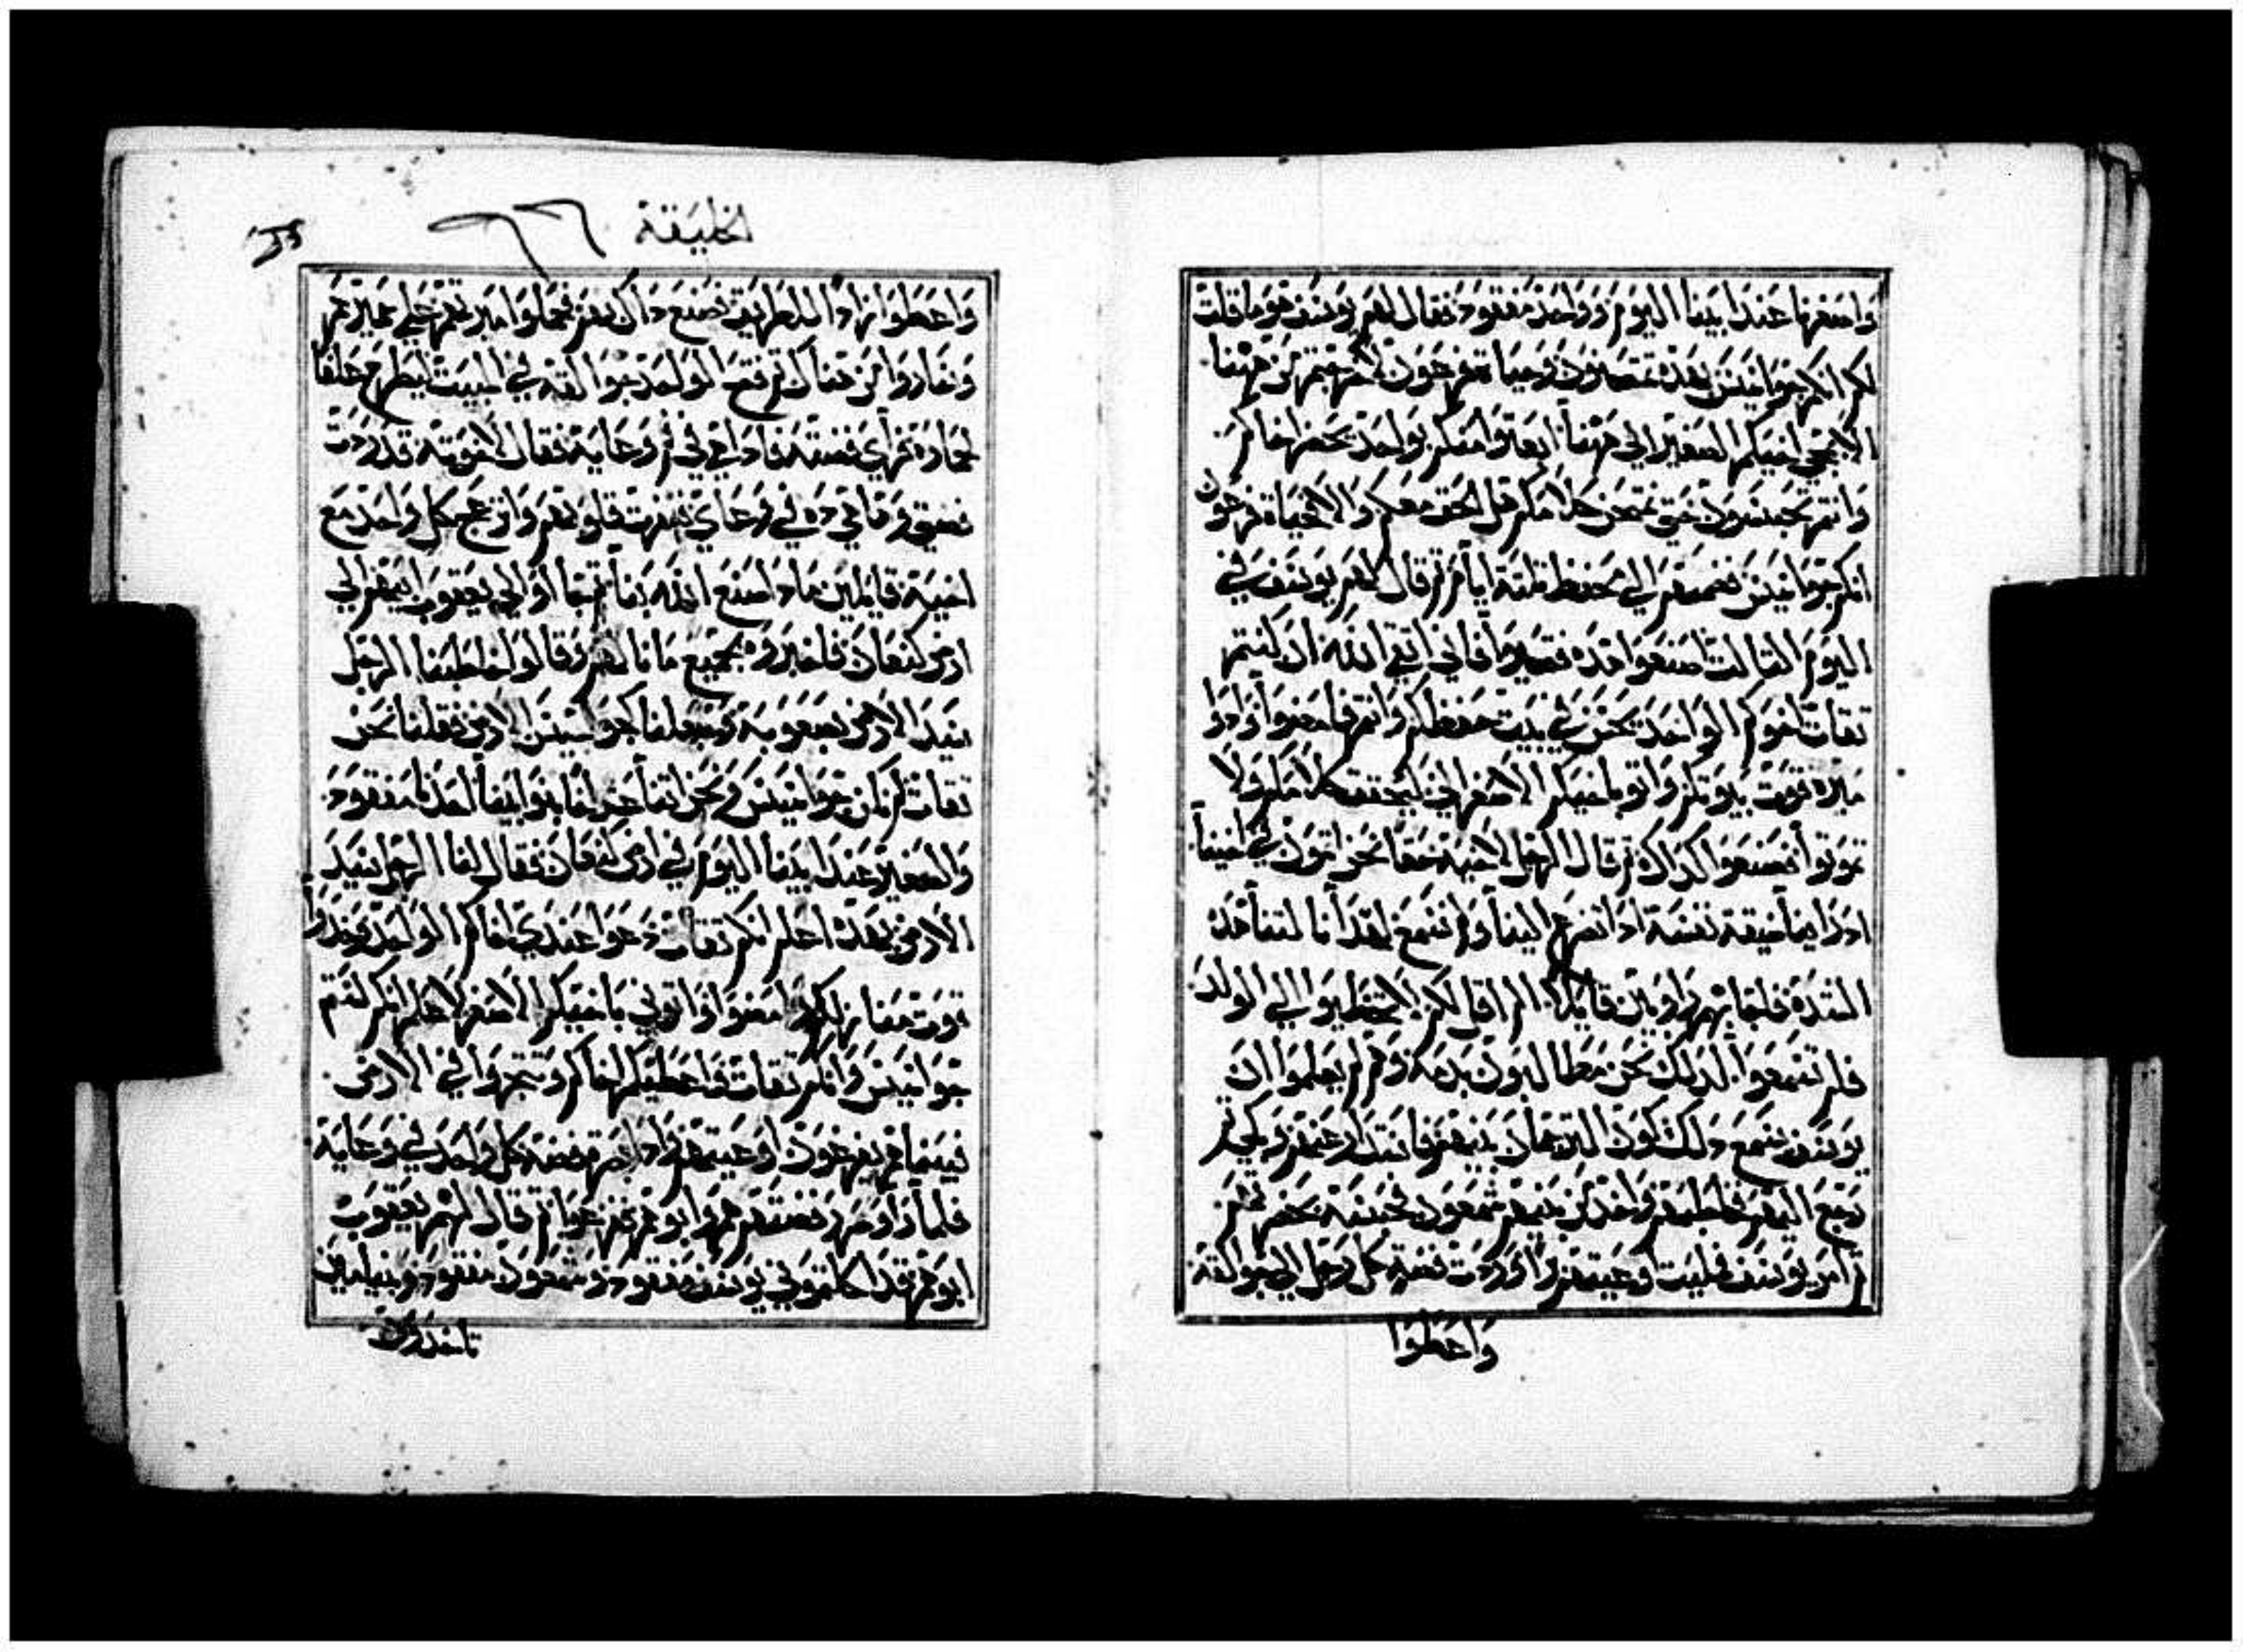 واصغرنا عند ابينا اليوم وواحد مفقود فقال لهم يوسف هو ما قلت
لكم انكم جواسيس بهذه تمتحنون وحياة فرعون لا خرجتم من ههنا
الا بمجي اخيكم الصغير الى ههنا ابعثوا منكم بواحد يحضر اخاكم
وانتم تحبسون حتى نمتحن كلامكم هل الحق معكم والا فحياة فرعون
انكم جواسيس فضمهم الي محفظ ثلثة ايام ثم قال لهم يوسف في
اليوم الثالث اصنعوا هذه فتحيوا فاني اتقي الله ان كنتم
ثقات اخوكم الواحد يحبس في بيت حفظكم وانتم فامضوا اوردوا
ميرة قوت بيوتكم واتوا باخيكم الاصغر الي ليتحقق كلامكم ولا
تموتوا فصنعوا كذلك ثم قال الرجل لاخيه حقا نحن اثمون في اخينا
اذ راينا ضيقة نفسه اذ تضرع الينا ولم نسمع لهذا نالتنا هذه
الشدة فاجابهم راوبين قايلا الم اقل لكم لا تخطيوا الي الولد
فلم تسمعوا لذلك نحن مطالبون بدمه وهم لم يعلموا ان
يوسف يسمع ذلك لكون الترجمان بينهم فاستدار عنهم وبكي ثم
رجع اليهم فخاطبهم واخذ من بينهم شمعون فحبسه بحضرتهم
ثم امر يوسف فمليت اوعيتهم برا وردت فضة كل رجل الي جوالقه
واعطوا
الخليقة
٦٦
واعطوا زادا للطريق فصنع ذلك بهم فحملوا ميرتهم علي حميرهم
وساروا من هناك ثم فتح الواحد جوالقه في المبيت ليطرح علفا
لحماره فراي فضته فاذا هي في فم وعايه فقال لاخوته قد ردت
فضتي وها هي ذه في وعاي فنفرت قلوبهم وانزعج كل واحد مع
اخيه قايلين ماذا صنع الله بنا ثم جاوا الي يعقوب ابيهم الي
ارض كنعان فاخبروه بجميع ما نالهم وقالوا خاطبنا الرجل
سيد الارض بصعوبة وجعلنا كجواسيس الارض فقلنا نحن
ثقات لم نكن جواسيس ونحن اثنا عشر اخا بنوا ابينا احدنا مفقود
والصغير عند ابينا اليوم في ارض كنعان فقال لنا الرجل سيد
الارض بهذه اعلم انكم ثقات دعوا عندي اخاكم الواحد وخذوا
قوت منازلكم وامضوا واتوني باخيكم الاصغر لاعلم انكم لستم
جواسيس وانكم ثقات فاعطيكم اخاكم وتتجروا في الارض
فبينما هم يفرغون اوعيتهم واذا صرة فضة كل واحد في وعايه
فلما راوا صرر فضتهم هم وابوهم فزعوا ثم قال لهم يعقوب
ابوهم قد اثكلتموني يوسف مفقود وشمعون مفقود وبنيامين
تاخذون